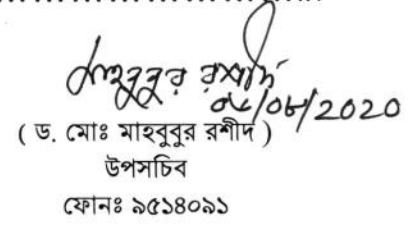 মাহবুবুর রশীদ
০৮/০৮/2020
( ড. মোঃ মাহবুবুর রশীদ )
উপসচিব
ফোনঃ ৯৫১৪০৯১